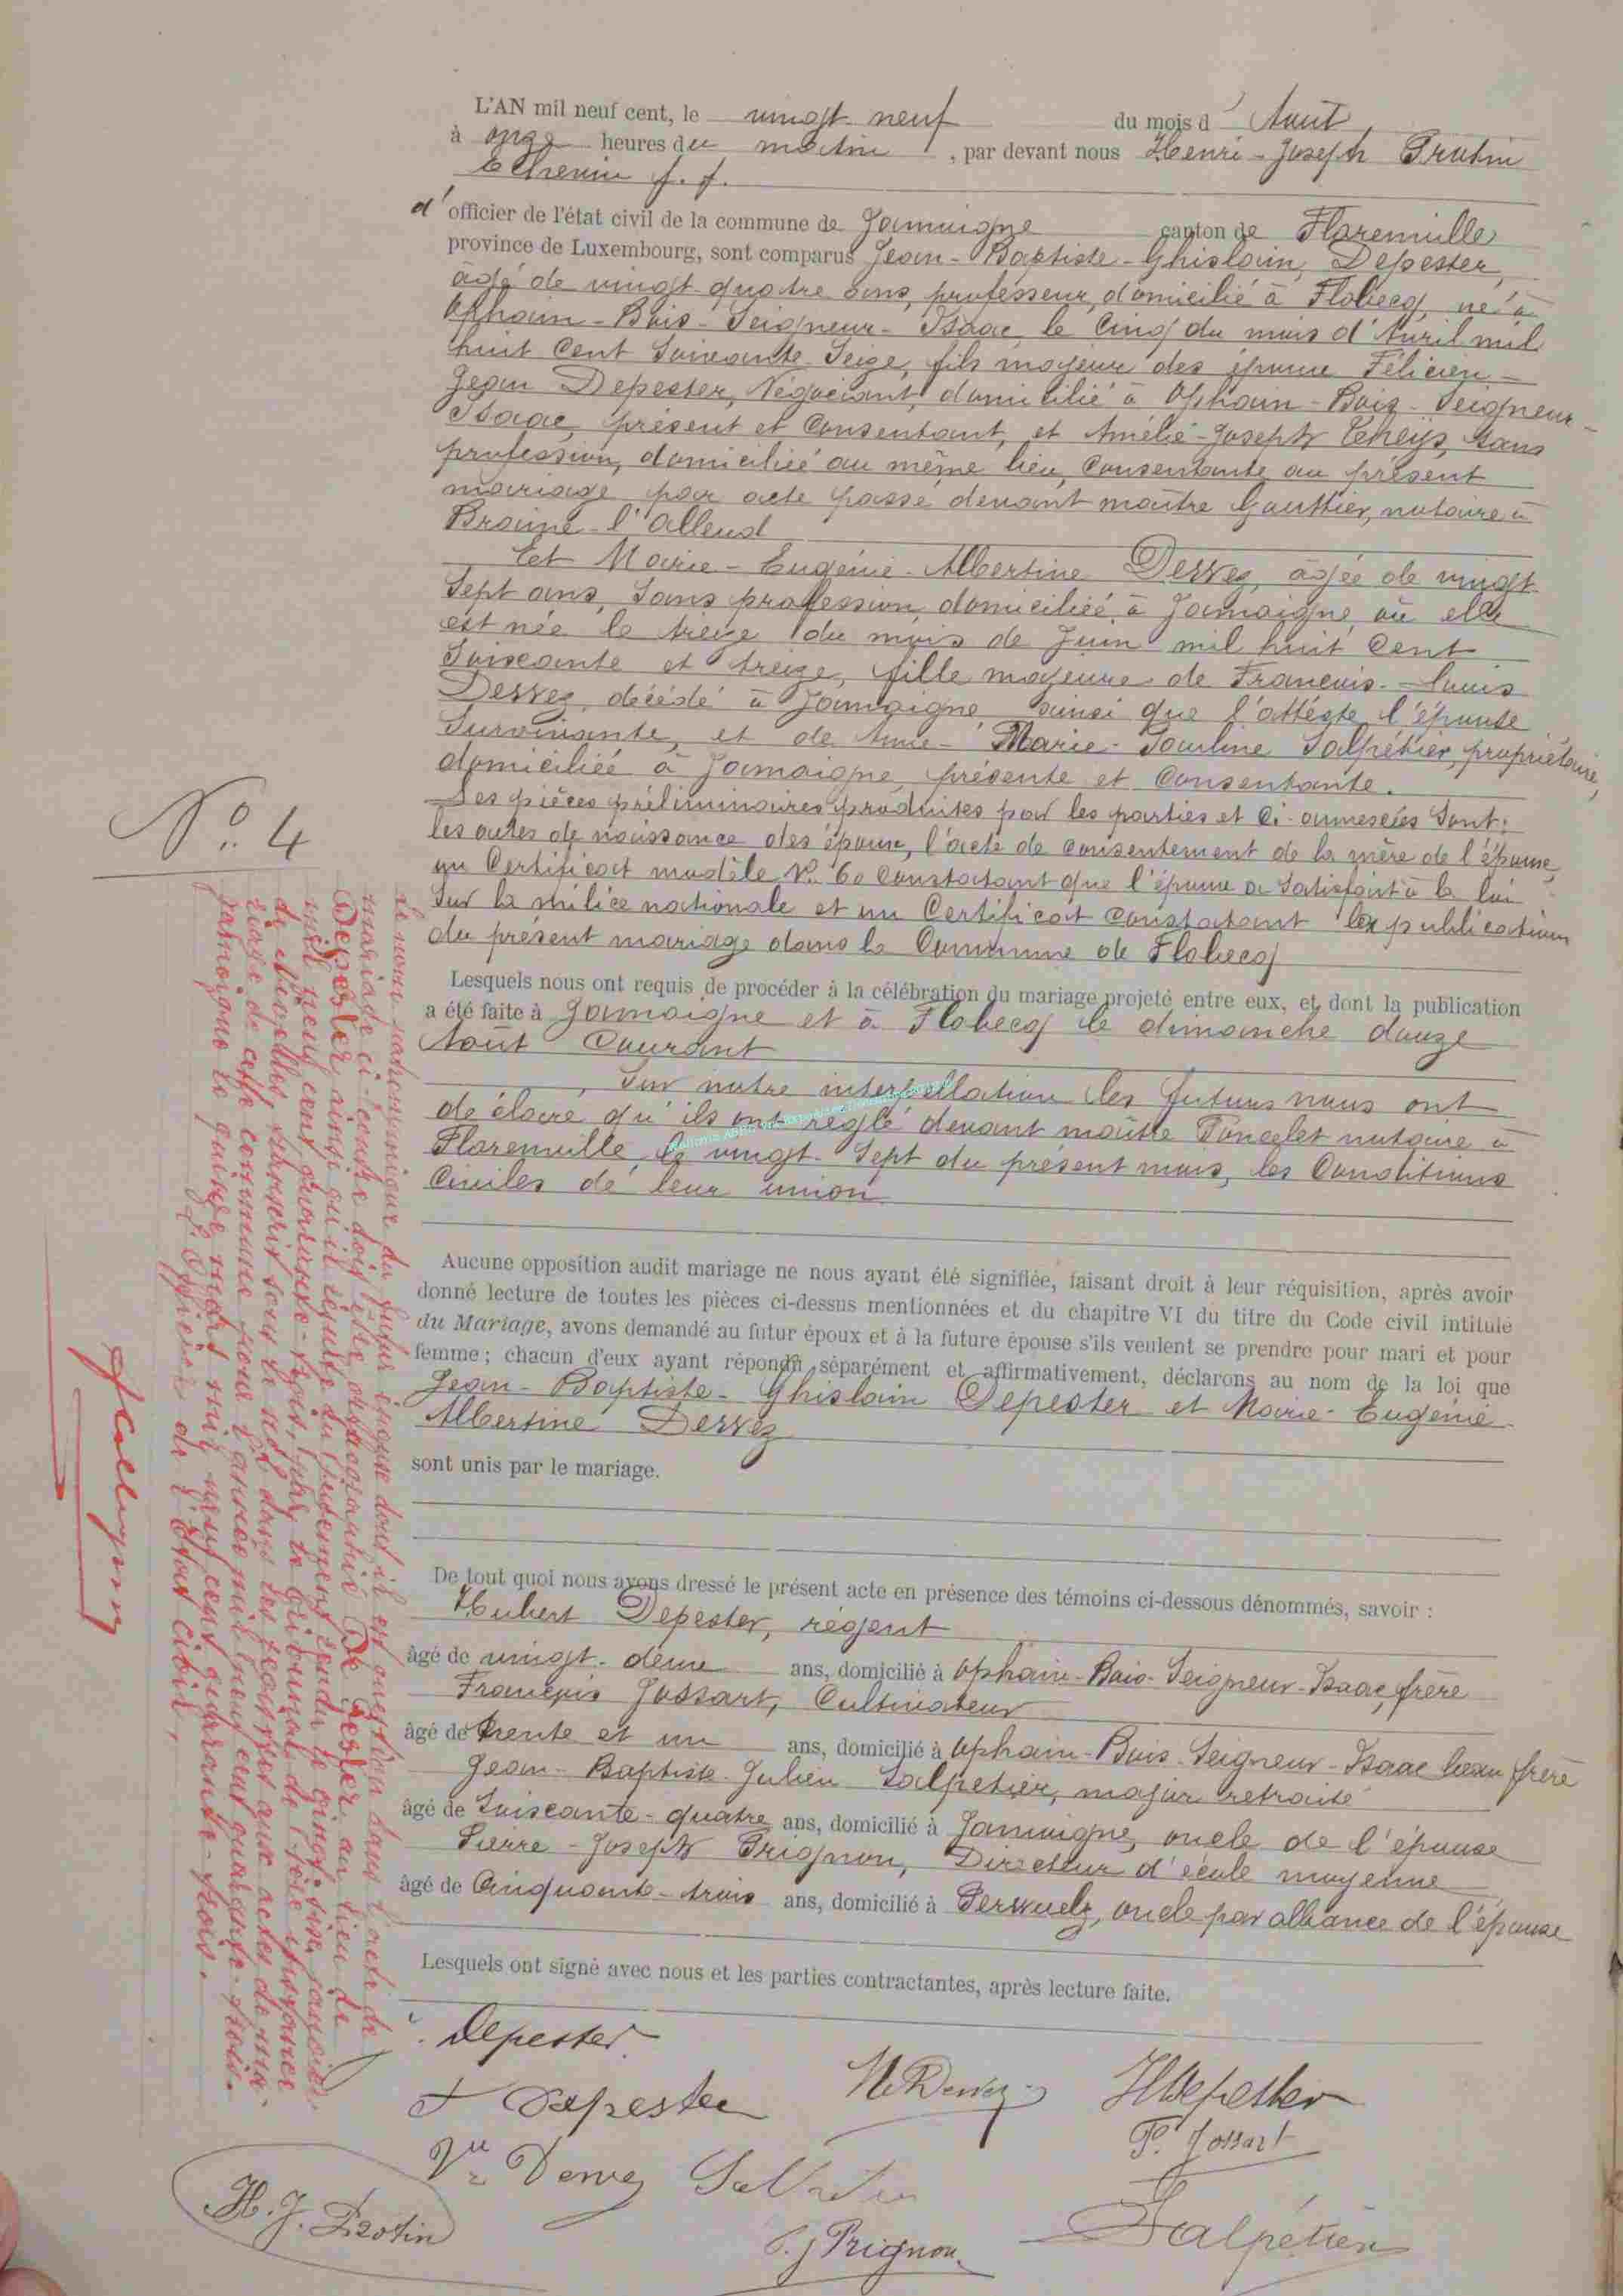 L'AN mil neuf cent, le vingt-neuf du mois d'Août,
à onze heures du matin, par devant nous Henri-Joseph Protin
Echevin f.f.
d'officier de l'état civil de la commune de Jamoigne canton de Florenville
province de Luxembourg, sont comparus Jean-Baptiste-Ghislain Depester,
âgé de vingt-quatre ans, professeur, domicilié à Flobecq, né à
Ophain-Bois-Seigneur-Isaac le cinq du mois d'Avril mil
huit cent soixante-seize, fils majeur des époux Félicien-
Jean Depester, Négociant, domicilié à Ophain-Bois-Seigneur-
Isaac, présent et consentant, et Amélie-Joseph sans
profession, domiciliée au même lieu, consentante au présent
mariage par acte passé devant maître Gauttier, notaire à
Braine-l'Alleud
Et Marie-Eugénie-Albertine Dervez, âgée de vingt-
sept ans, sans profession, domiciliée à Jamoigne, où elle
est née le treize du mois de Juin mil huit cent
soixante et treize, fille majeure de François-Louis
Dervez, décédé à Jamoigne ainsi que l'atteste l'épouse
survivante, et de Anne-Marie-Pauline Salpétier, propriétaire,
domiciliée à Jamoigne, présente et consentante.
Les pièces préliminaires produites par les parties et ci-annexées sont:
les actes de naissance des époux, l'acte de consentement de la mère de l'époux,
un certificat modèle N° 60 constatant que l'époux a satisfait à la loi
sur la milice nationale et un certificat constatant les publications
du présent mariage dans la commune de Flobecq
N° 4
Lesquels nous ont requis de procéder à la célébration du mariage projeté entre eux, et dont la publication
a été faite à Jamoigne et à Flobecq le dimanche douze
Août courant
Sur notre interpellation les futurs nous ont
déclaré qu'ils ont réglé devant maître Poncelet notaire à
Florenville, le vingt-sept du présent mois, les conditions
civiles de leur union.
Aucune opposition audit mariage ne nous ayant été signifiée, faisant droit à leur réquisition, après avoir
donné lecture de toutes les pièces ci-dessus mentionnées et du chapitre VI du titre du Code civil intitulé
du Mariage, avons demandé au futur époux et à la future épouse s'ils veulent se prendre pour mari et pour
femme; chacun d'eux ayant répondu séparément et affirmativement, déclarons au nom de la loi que
Jean-Baptiste-Ghislain Depester et Marie-Eugénie-
Albertine Dervez
sont unis par le mariage.
De tout quoi nous avons dressé le présent acte en présence des témoins ci-dessous dénommés, savoir :
Hubert Depester, régent
âgé de vingt-deux ans, domicilié à Ophain-Bois-Seigneur-Isaac, frère
François Jossart, Cultivateur
âgé de trente et un ans, domicilié à Ophain-Bois-Seigneur-Isaac beau frère
Jean-Baptiste-Julien Salpetier, major retraité
âgé de soixante-quatre ans, domicilié à Jamoigne, oncle de l'épouse
Pierre-Joseph Prignon, Directeur d'école moyenne
âgé de cinquante-trois ans, domicilié à Perwelz, oncle par alliance de l'épouse
Lesquels ont signé avec nous et les parties contractantes, après lecture faite.
Depester
Depester
M Dervez
H Depester
F. Jossart
Vve Dervez
H. J. Protin
P. J Prignon
Salpétier
Le nom patronymique du futur époux dont il est question dans l'acte de
mariage ci-contre doit être orthographié De Pester au lieu de
Depester, ainsi qu'il résulte du jugement rendu le vingt-six janvier
mil neuf cent quarante-trois, par le tribunal de 1ère instance
de Bruxelles, transcrit sous le n° 1 dans les registres aux actes de ma-
riage de cette commune pour l'année mil neuf cent quarante-trois.
Jamoigne le quinze mars mil neuf cent quarante-trois.
L'Officier de l'état civil,